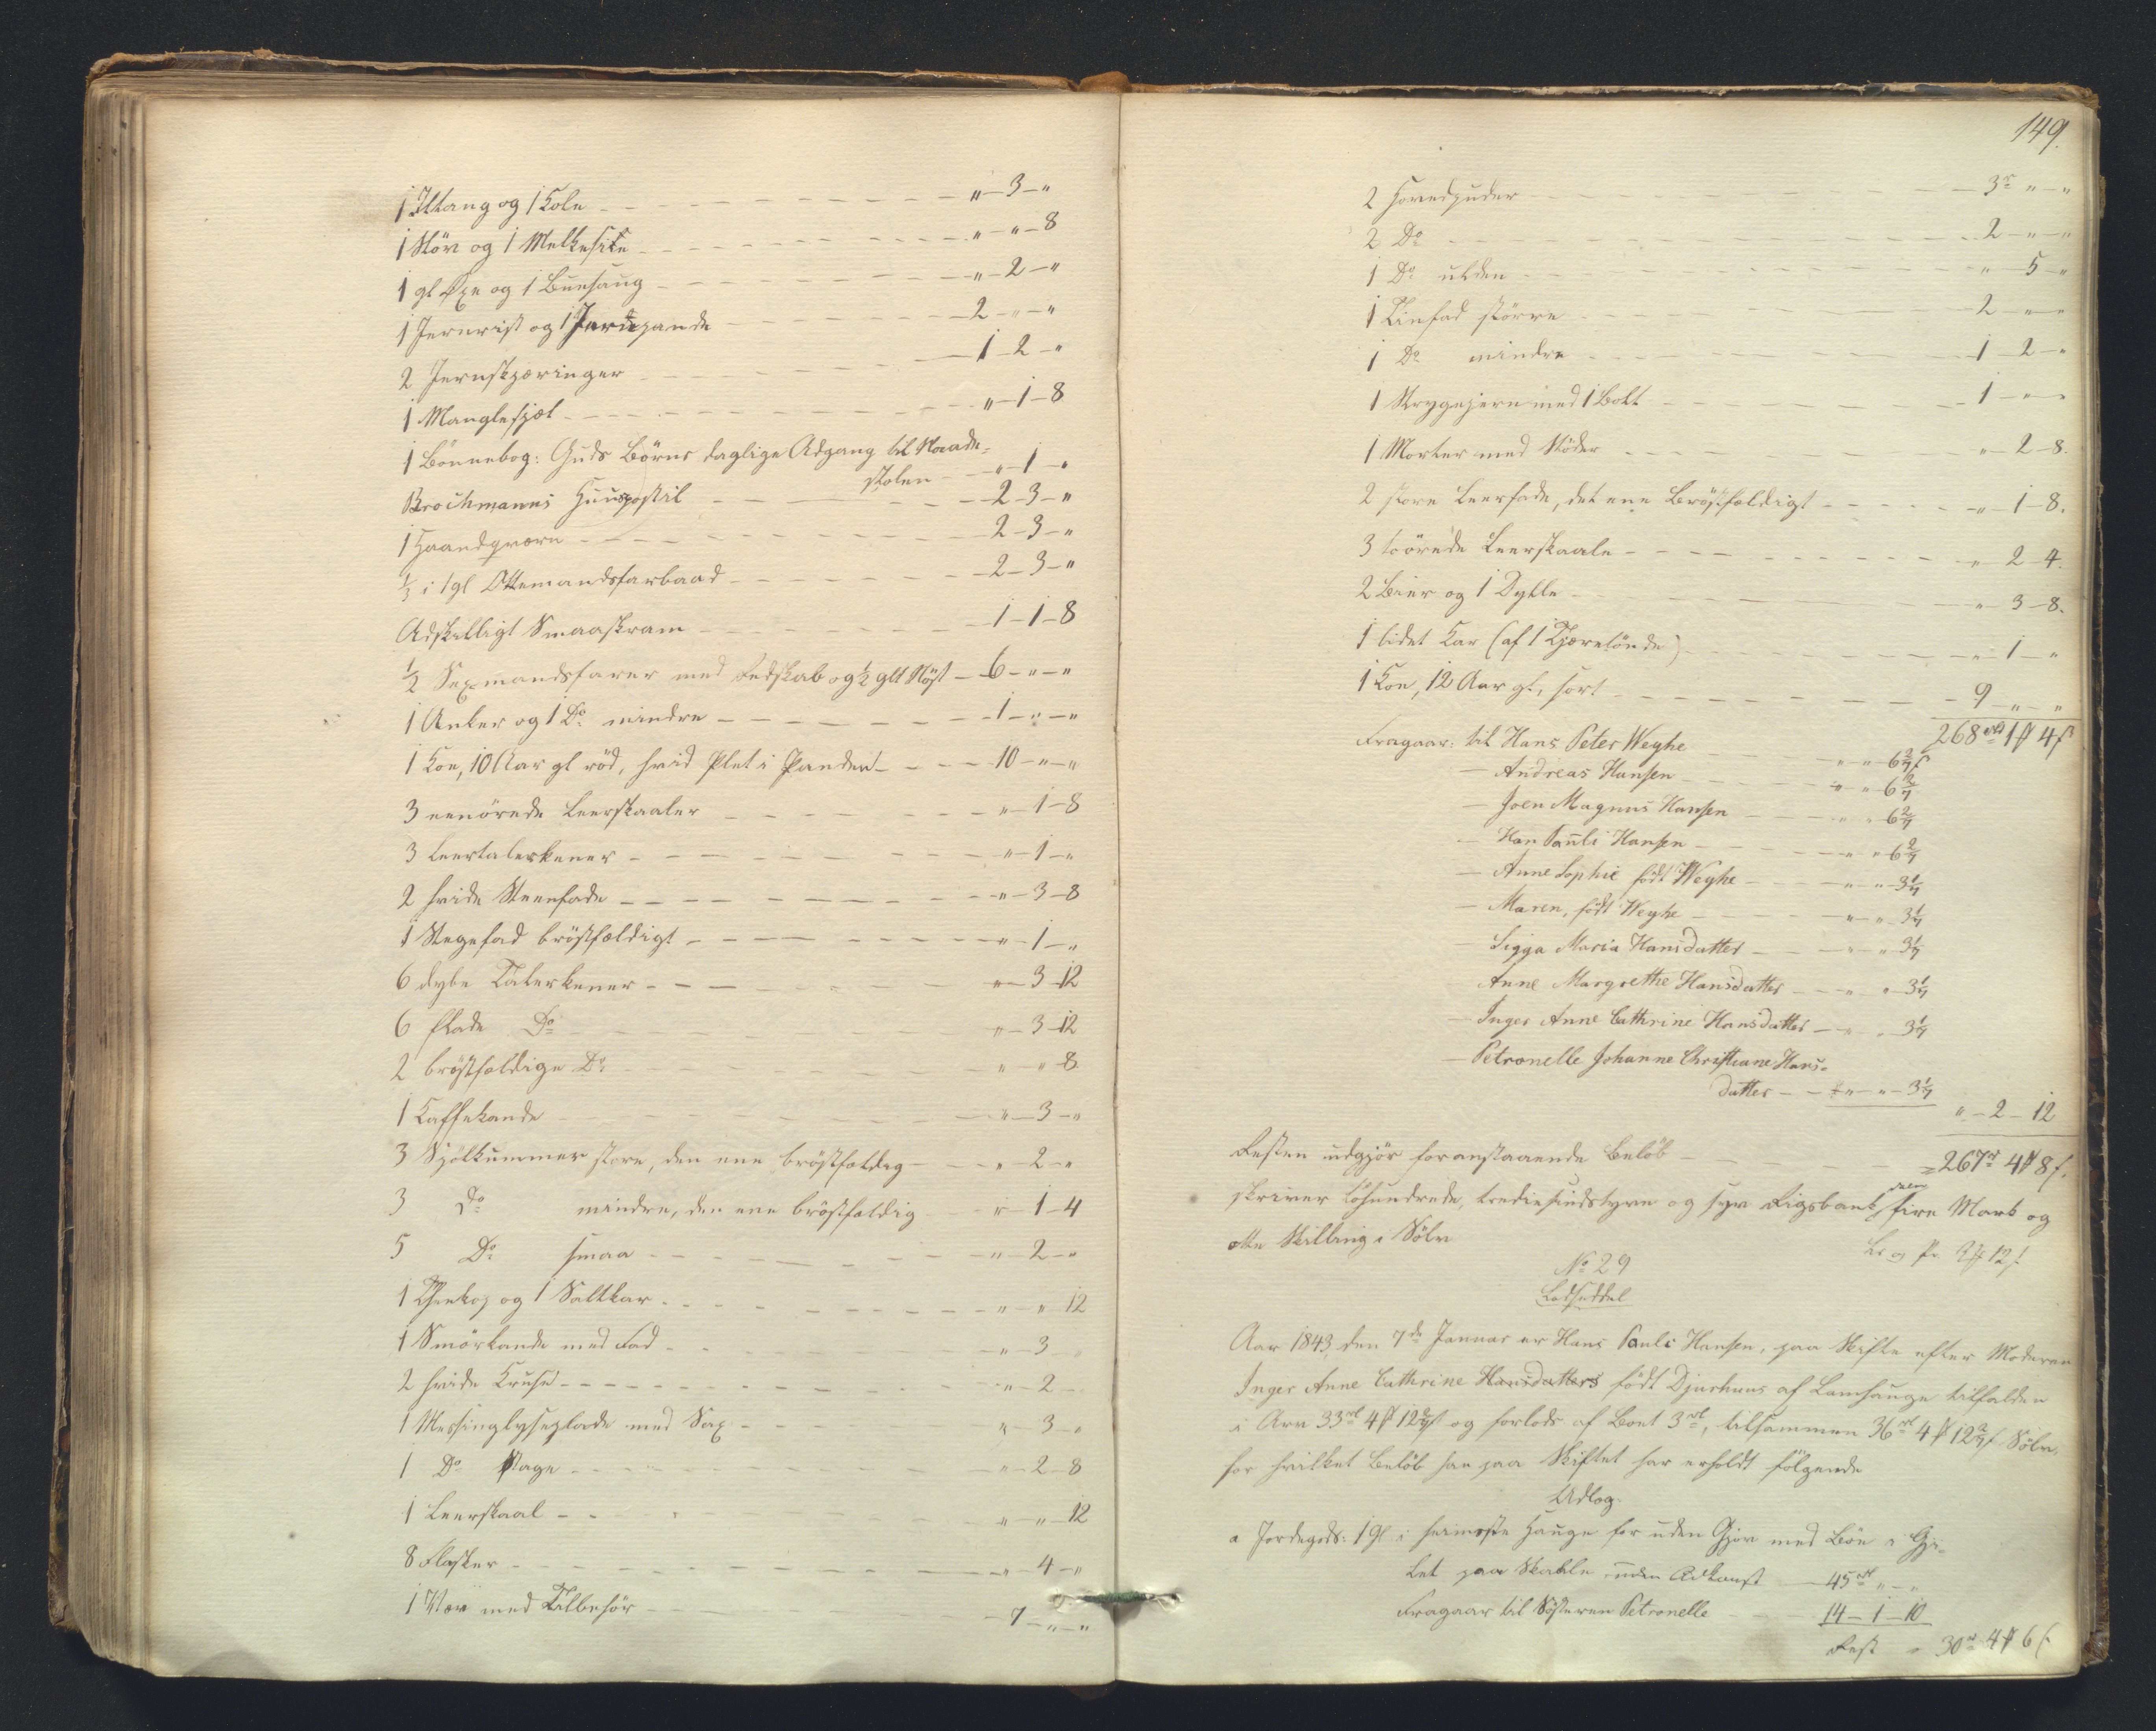 1 Ildtang og 1 Kole - - - „ - 3 - „
1 Növ og 1 Melkesie - - - „ - „ - 8
1 gl Öxe og 1 Buesaug - - - „ - 2 - „
1 Jernrist og 1 Jernpande - - - 2 - „ - „
2 Jernskjæringer - - - 1 - 2 - „
1 Manglefjæl - - - „ - 1 - 8
1 Bönnebog: Guds Börns daglige Adgang til Naade-
stolen - „ - 1 - „
Brochmanns Huuspostil - - - 2 - 3 - „
1 Haandqværn - - - 2 - 3 - „
1/3 i 1 gl Ottemandsfarbaad - - - 2 - 3 - „
Adskilligt Smaaskram - - - 1 - 1 - 8
1/2 Sexmandsfarer med Redskab og 1/2 glt Nöst - 6 - „ - „
1 Anker og 1 Do mindre - - - 1 - „ - „
1 Koe, 10 Aar gl röd, hvid Plet i Panden - - - 10 - „ - „
3 eenörede Leerskaaler - - - „ - 1 - 8
3 Leertalerkener - - - „ - 1 - „
2 hvide Steenfade - - - „ - 3 - 8
1 Stegefad bröstfældigt - - - „ - 1 - „
6 dybe Talerkener - - - „ - 3 - 12
6 flade Do - - - „ - 3 - 12
2 bröstfældige Do - - - „ - „ - 8
1 Kaffekande - - - „ - 3 - „
3 Spölkummer store, den ene bröstfældig - - - „ - 2 - „
3 Do mindre, den ene bröstfældig - - - „ - 1 - 4
5 Do smaa - - - „ - 2 - „
1 Theekop og 1 Saltkar - - - „ - „ - 12
1 Smörkande med Fad - - - „ - 3
2 hvide Kruse - - - „ - 2 -
1 Messinglyseplade med Sax - - - „ - 3 - „
1 Do Stage - - - „ - 2 - 8
1 Leerskaal - - - „ - „ - 12
8 Flasker - - - „ - 4 - „
1 Væv med Tilbehör - - - 7 - „ - „
149.
2 Hovedpuder - - - 3 „ - „
2 Do - - - 2 - „ - „
1 Do ulden - - - „ - 5 - „
1 Tinfad större - - - 2 - „ - „
1 Do mindre - - - 1 - 2 - „
1 Strygejern med 1 Bolt - - - 1 - „ - „
1 Morter med Stöder - - - „ - 2 - 8.
2 store Leerfade, det ene Bröstfældigt - - - „ - 1 - 8.
3 toörede Leerskaale - - - „ - 2 - 4.
2 Bier og 1 Dylle - - - „ - 3 - 8.
1 lidet Kar (af 1 Tjæretönde) - - - „ - 1 - „
1 Koe, 12 Aar gl., sort - - - 9 - „ - „
268 rbd 1 ℳ 4 ß
Fragaar: til Hans Peter Weyhe - „ - „ - 6 2/7 ß
- Andreas Hansen - - - „ - „ - 6 2/7
- Joen Magnus Hansen - - - „ - „ - 6 2/7
- Han Pauli Hansen - - - „ - „ - 6 2/7
- Anne Sophie födt Weyhe - - - „ - „ - 3 1/7
- Maren, födt Weyhe - - - „ - „ - 3 1/7
- Sigga Maria Hansdatter - - - „ - „ - 3 1/7
Anne Margrethe Hansdatter - - - „ - „ - 3 1/7
- Inger Anne Cathrine Hansdatter - „ - „ - 3 1/7
- Petronelle Johanne Christiane Hans-
datter - - - „ - „ - 3 1/7
„ - 2 - 12
Resten udgjör foranstaaende Belöb - - - 267 rd 4 ℳ 8 ß.
skriver tohundrede, trediesindstyve og syv Rigsbankdlr, fire Mark og
otte Skilling i Sölv
No 29
Lodseddel
Aar 1843, den 7de Januar er Hans Pauli Hansen, paa Skifte efter Moderen
Inger Anne Cathrine Hansdatters födt Djurhuus af Lamhauge tilfalden
i Arv 33 rd 4 ℳ 12 2/7 ß og forlods af Boet 3 rd, tilsammen 36 rd 4 ℳ 12 2/7 ß Sölv,
for hvilket Belöb han paa Skiftet har erholdt fölgende
Udlog.
a Jordegods: 1 Gl. i heimeste Hauge for uden Gjov med Böe i Gje-
let paa Skaale uden Adkomst - 45 rd „ - „
Fragaar til Sösteren Petronelle - - - 14 - 1 - 10
Rest - 30 rd 4 ℳ 6 ß